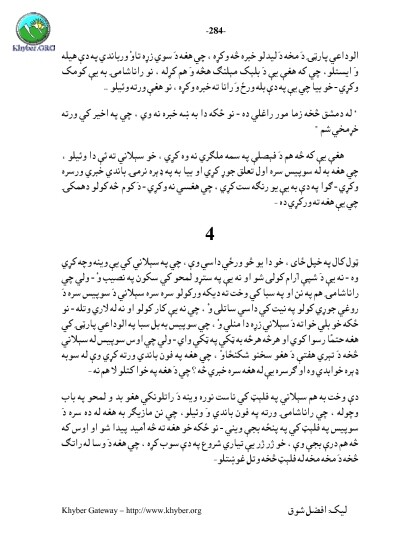 -284-
Khyber.ORG
الوداعي پارټۍ دَ مخه دَ ليدلو خبره څه وکړه ، چي هغې دَ سوي زړه تاوْ ورباندي په دې هيله
وَ ايستلو ، چي که هغې يې دَ بلبک مېلنگ هڅه وَ هم کړله ، نو راناشامۍ به يې کومک
وکړي - خو بيا چي يې په دې بله ورځ وَ رانا ته خبره وکړه ، نو هغې ورته وئيلو ..
" له دمشق څخه زما مور راغلي ده - نو ځکه دا به ښه خبره نه وي ، چي په اخير کي ورته
خړمخي شم "
هغې يې که څه هم دَ فېصلې په سمه ملگري نه وه کړې ، خو سېلاني ته ئې دا وئيلو ،
چي هغه به له سوپيس سره اول تعلق جوړ کړي او بيا به په ډېره نرمۍ باندي خبري ورسره
وکړي - گوا په دې به يې يو رنگه ست کړي ، چي هغسي نه وکړي - دَ کوم څه کولو دهمکۍ
چي يې هغه ته ورکړې ده -
4
ټول کال په خپل ځای ، خو دا يو څو ورځي داسي وې ، چي په سېلاني کي يې وينه وچه کړې
وه - نه يې دَ شپې آرام کولی شو او نه يې په سترو لمحو کي سکون په نصيب وُ - ولي چي
راناشامۍ هم په نن او په سبا کي وخت ته ديکه ورکولو سره سره سېلاني دَ سوپيس سره دَ
روغي جوړي کولو په نيت کي داسي ساتلی وُ ، چي نه يې کار کولو او نه له لاري وتله - نو
ځکه خو بلي خوا ته دَ سېلاني زړه دا منلي وُ ، چي سوپيس به بل سبا په الوداعي پارټۍ کي
هغه حتمًا رسوا کوي او هره هرڅه به ټکي په ټکي وايي - ولي چي اوس سوپيس له سېلاني
څخه دَ تېري هفتې دَ هغو سختو شکنځاوْ ، چي هغه په فون باندي ورته کړې وې له سو به
ډېره خوابدې وه او گرسره يې له هغه سره خبري څه ؟ چي دَ هغه په خوا کتلو لا هم نه -
دې وخت به هم سېلاني په فلېټ کي ناست نوره وينه دَ راتلونکي هغو بد و لمحو په باب
وچوله ، چي راناشامۍ ورته په فون باندي وَ وئيلو ، چي نن مازيگر به هغه له ده سره دَ
سوپيس په فلېټ کي په پنځه بجې ويني - نو ځکه خو هغه ته څه آميد پېدا شو او اوس که
څه هم درې بجې وې ، خو ژر ژر يې تياري شروع په دې سوب کړه ، چي هغه دَ وسا له راتگ
څخه دَ مخه مخه له فلېټ څخه وتل غوښتلو -
Khyber Gateway – http://www.khyber.org
ليک: افضل شوق